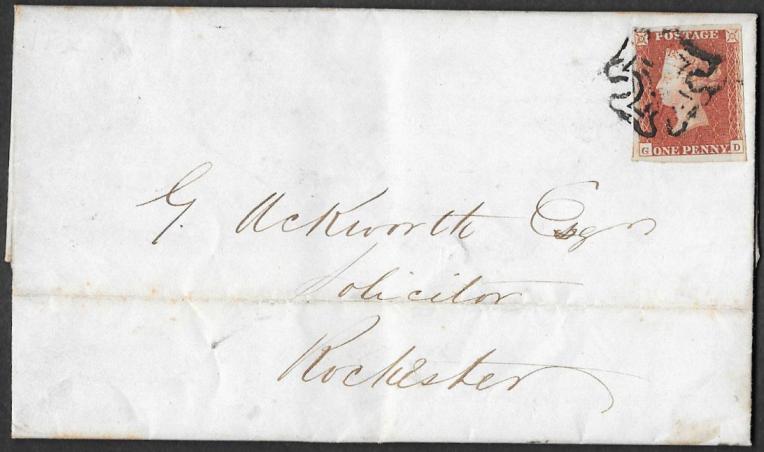 POSTAGE
ONE PENNY
G D
G. Ackworth Esqr
Solicitor
Rochester